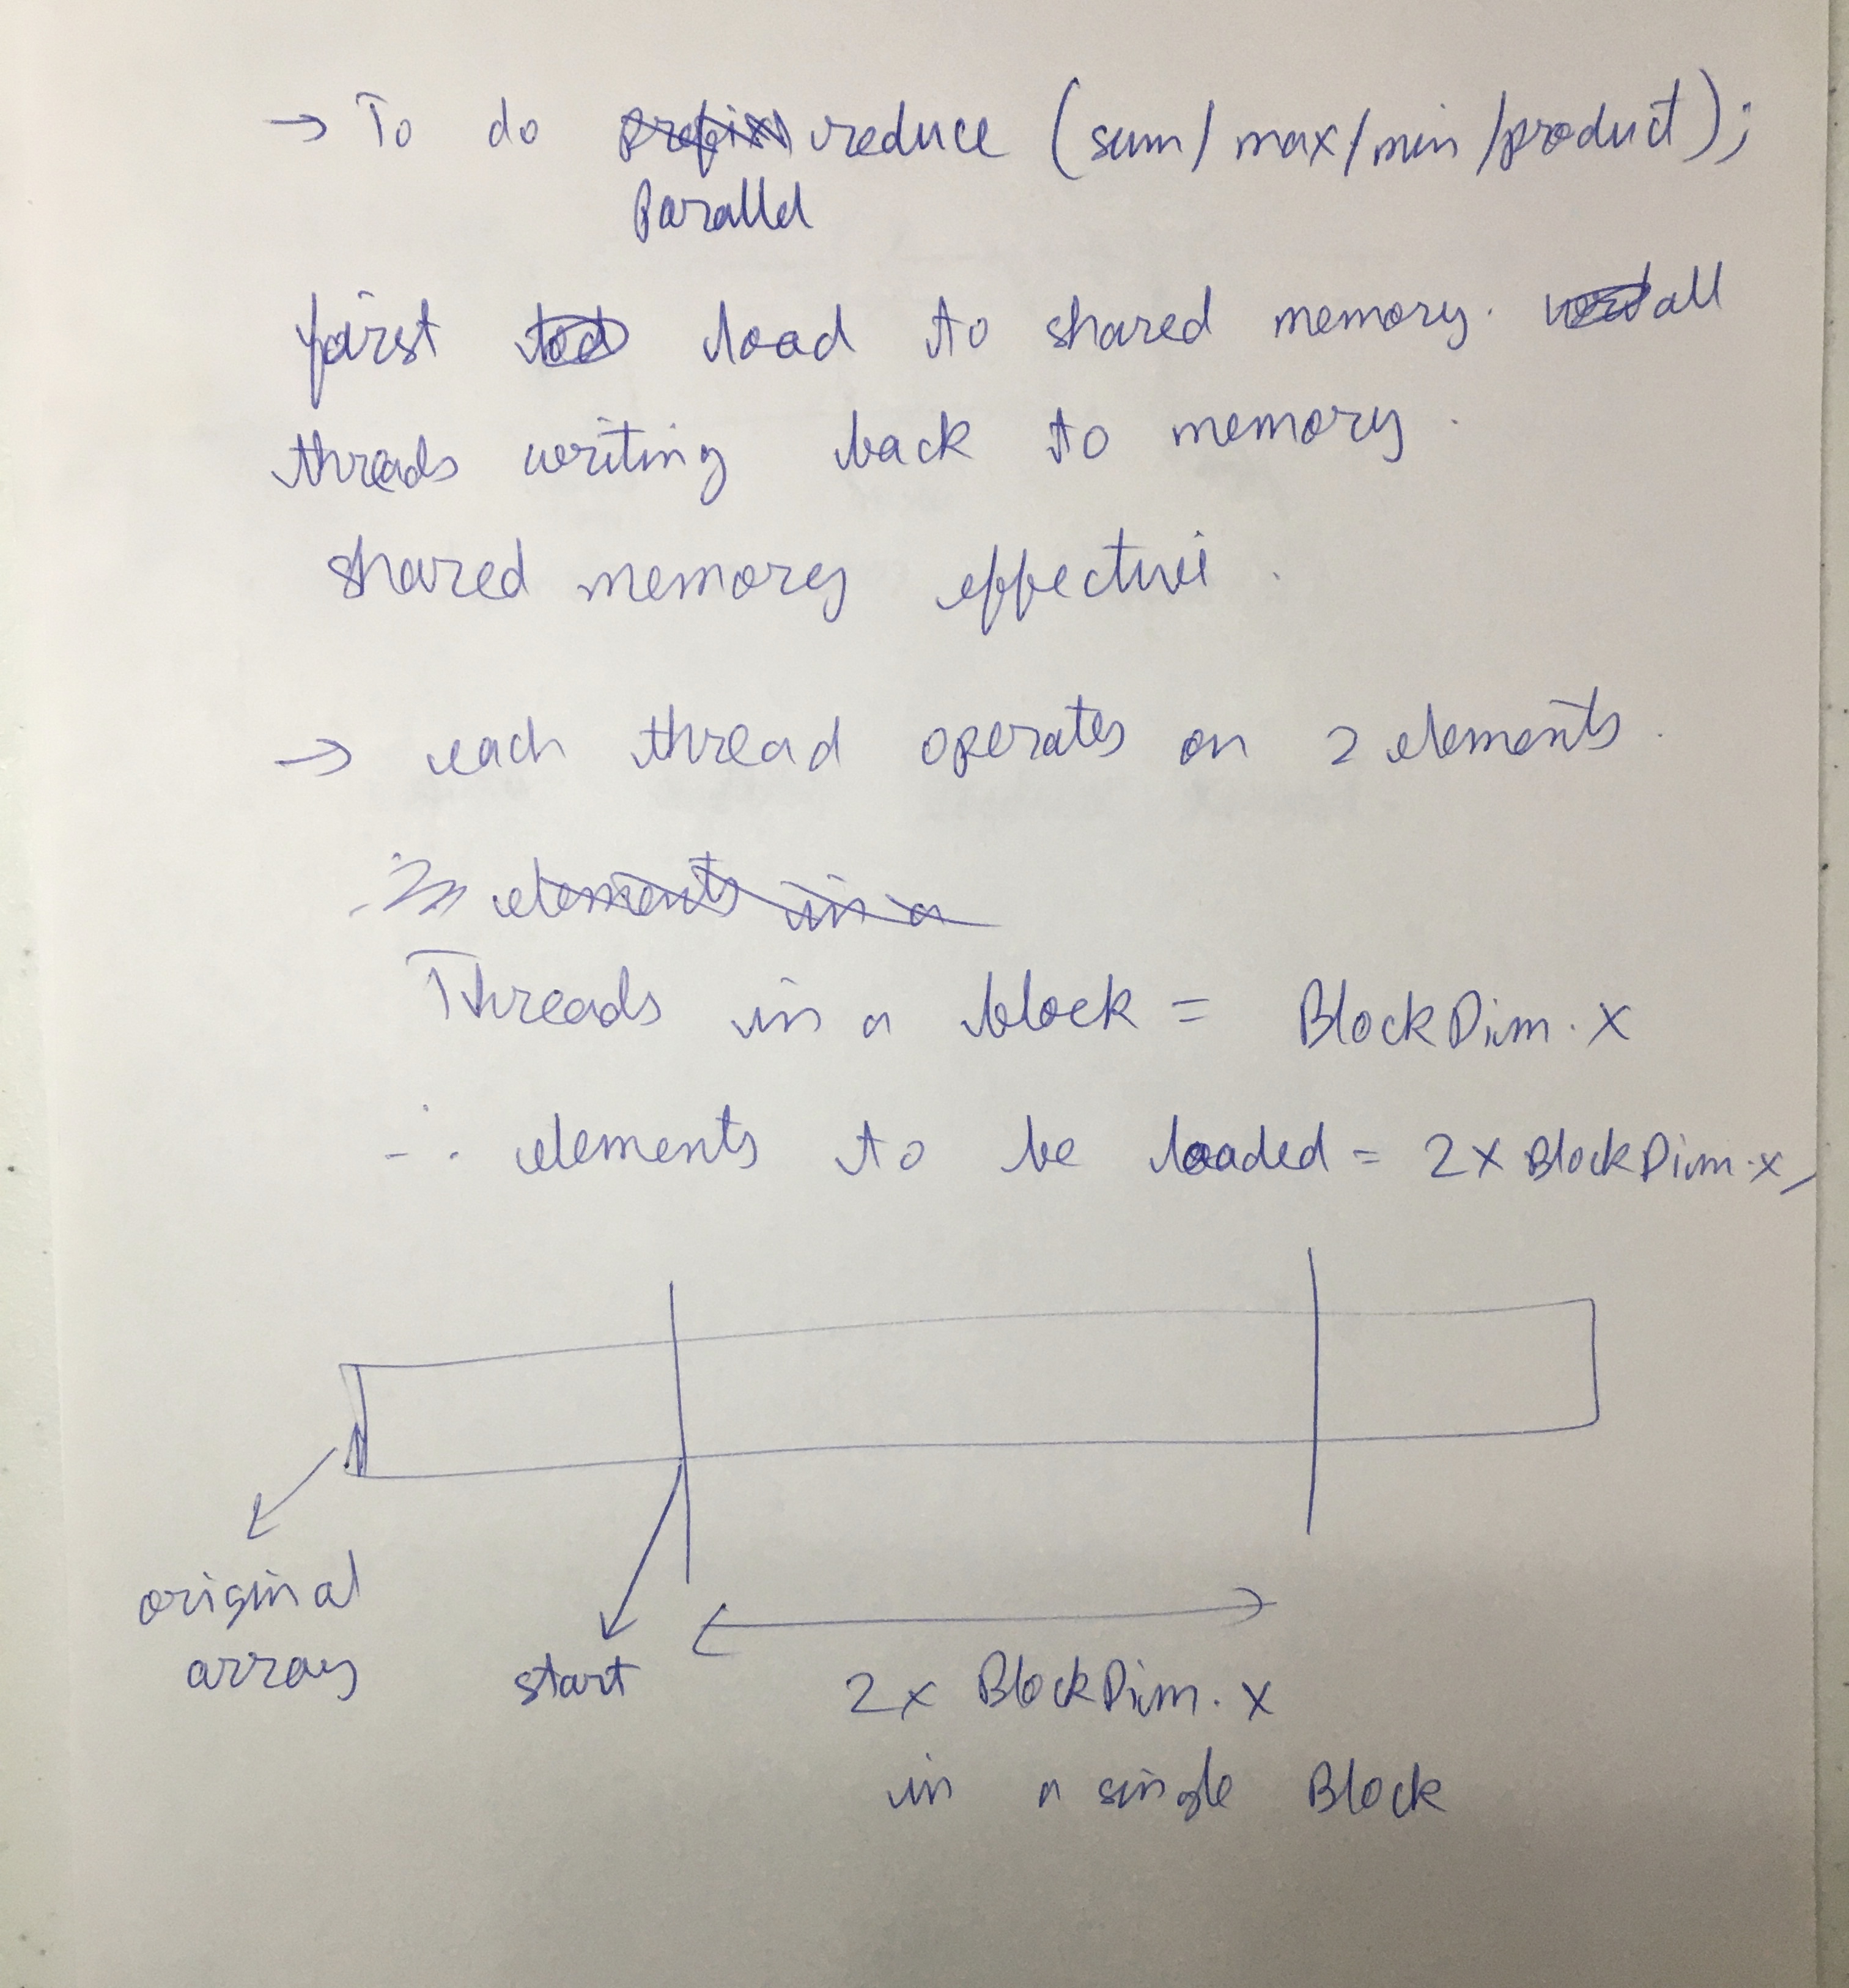 → To do reduce (sum/max/min/product);
Parallel
first load to shared memory. all
threads writing back to memory.
shared memory effective.
→ each thread operates on 2 elements.
∴ elements in a
Threads in a block = BlockDim.x
∴ elements to be loaded = 2x BlockDim.x,
original
array
start
2x BlockDim.x
in a single Block